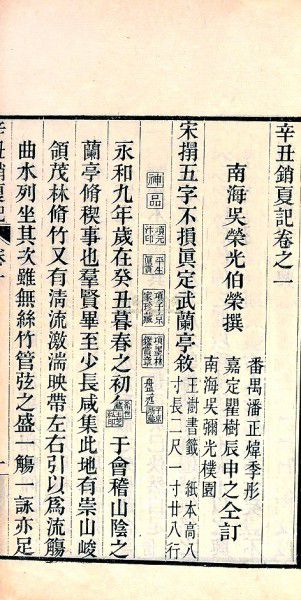 辛丑銷夏記卷之一
南海吳榮光伯榮撰
番禺潘正煒季彤
嘉定瞿樹辰申之仝訂
南海吳彌光樸園
宋搨五字不損眞定武蘭亭敘
王澍書籤 紙本高八
寸長二尺一寸廿八行
神品
項元
汴印
平生
眞賞
項子京
家珍藏
項墨林
鑑賞章
永和九年歲在癸丑暮春之初
于會稽山陰之
蘭亭脩稧事也羣賢畢至少長咸集此地有崇山峻
領茂林脩竹又有清流激湍映帶左右引以為流觴
曲水列坐其次雖無絲竹管弦之盛一觴一詠亦足
辛丑銷夏記
卷一
一